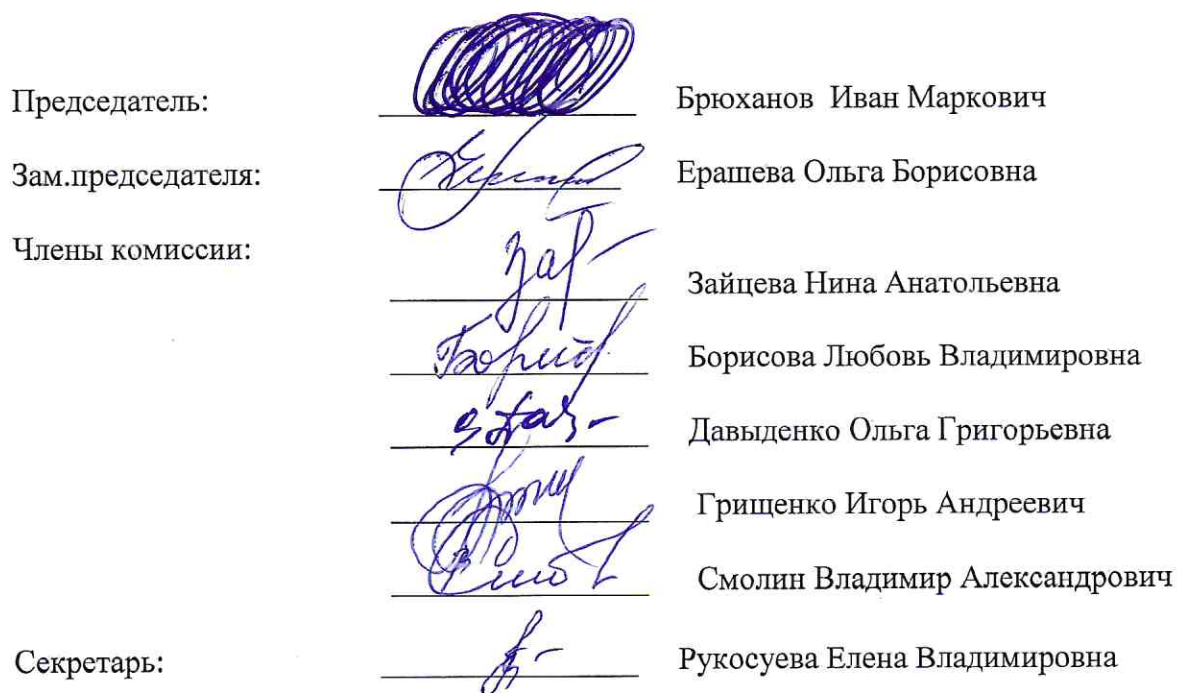 Председатель: Брюханов Иван Маркович
Зам.председателя: Ерашева Ольга Борисовна
Члены комиссии:
Зайцева Нина Анатольевна
Борисова Любовь Владимировна
Давыденко Ольга Григорьевна
Грищенко Игорь Андреевич
Смолин Владимир Александрович
Секретарь: Рукосуева Елена Владимировна